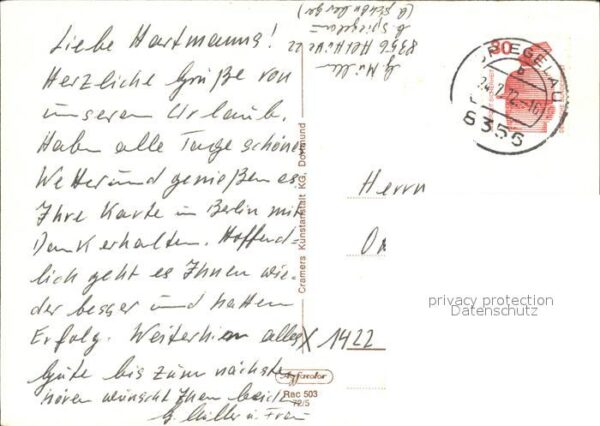 Liebe Hartmanns!
Herzliche Grüße von
unserem Urlaub.
Haben alle Tage schönes
Wetter und genießen es.
Ihre Karte in Berlin mit
Dank erhalten. Hoffent-
lich geht es Ihnen wie-
der besser und hatten
Erfolg. Weiterhin alles
Gute bis zum nächsten
hören wünscht Ihnen beiden
G. Müller u. Frau
G. Müller
8356
b. Spiegelau
30
SPIEGELAU
8356
Cramers Kunstanstalt KG, Dortmund
Herrn
X 1422
privacy protection
Datenschutz
Rac 503
72/5